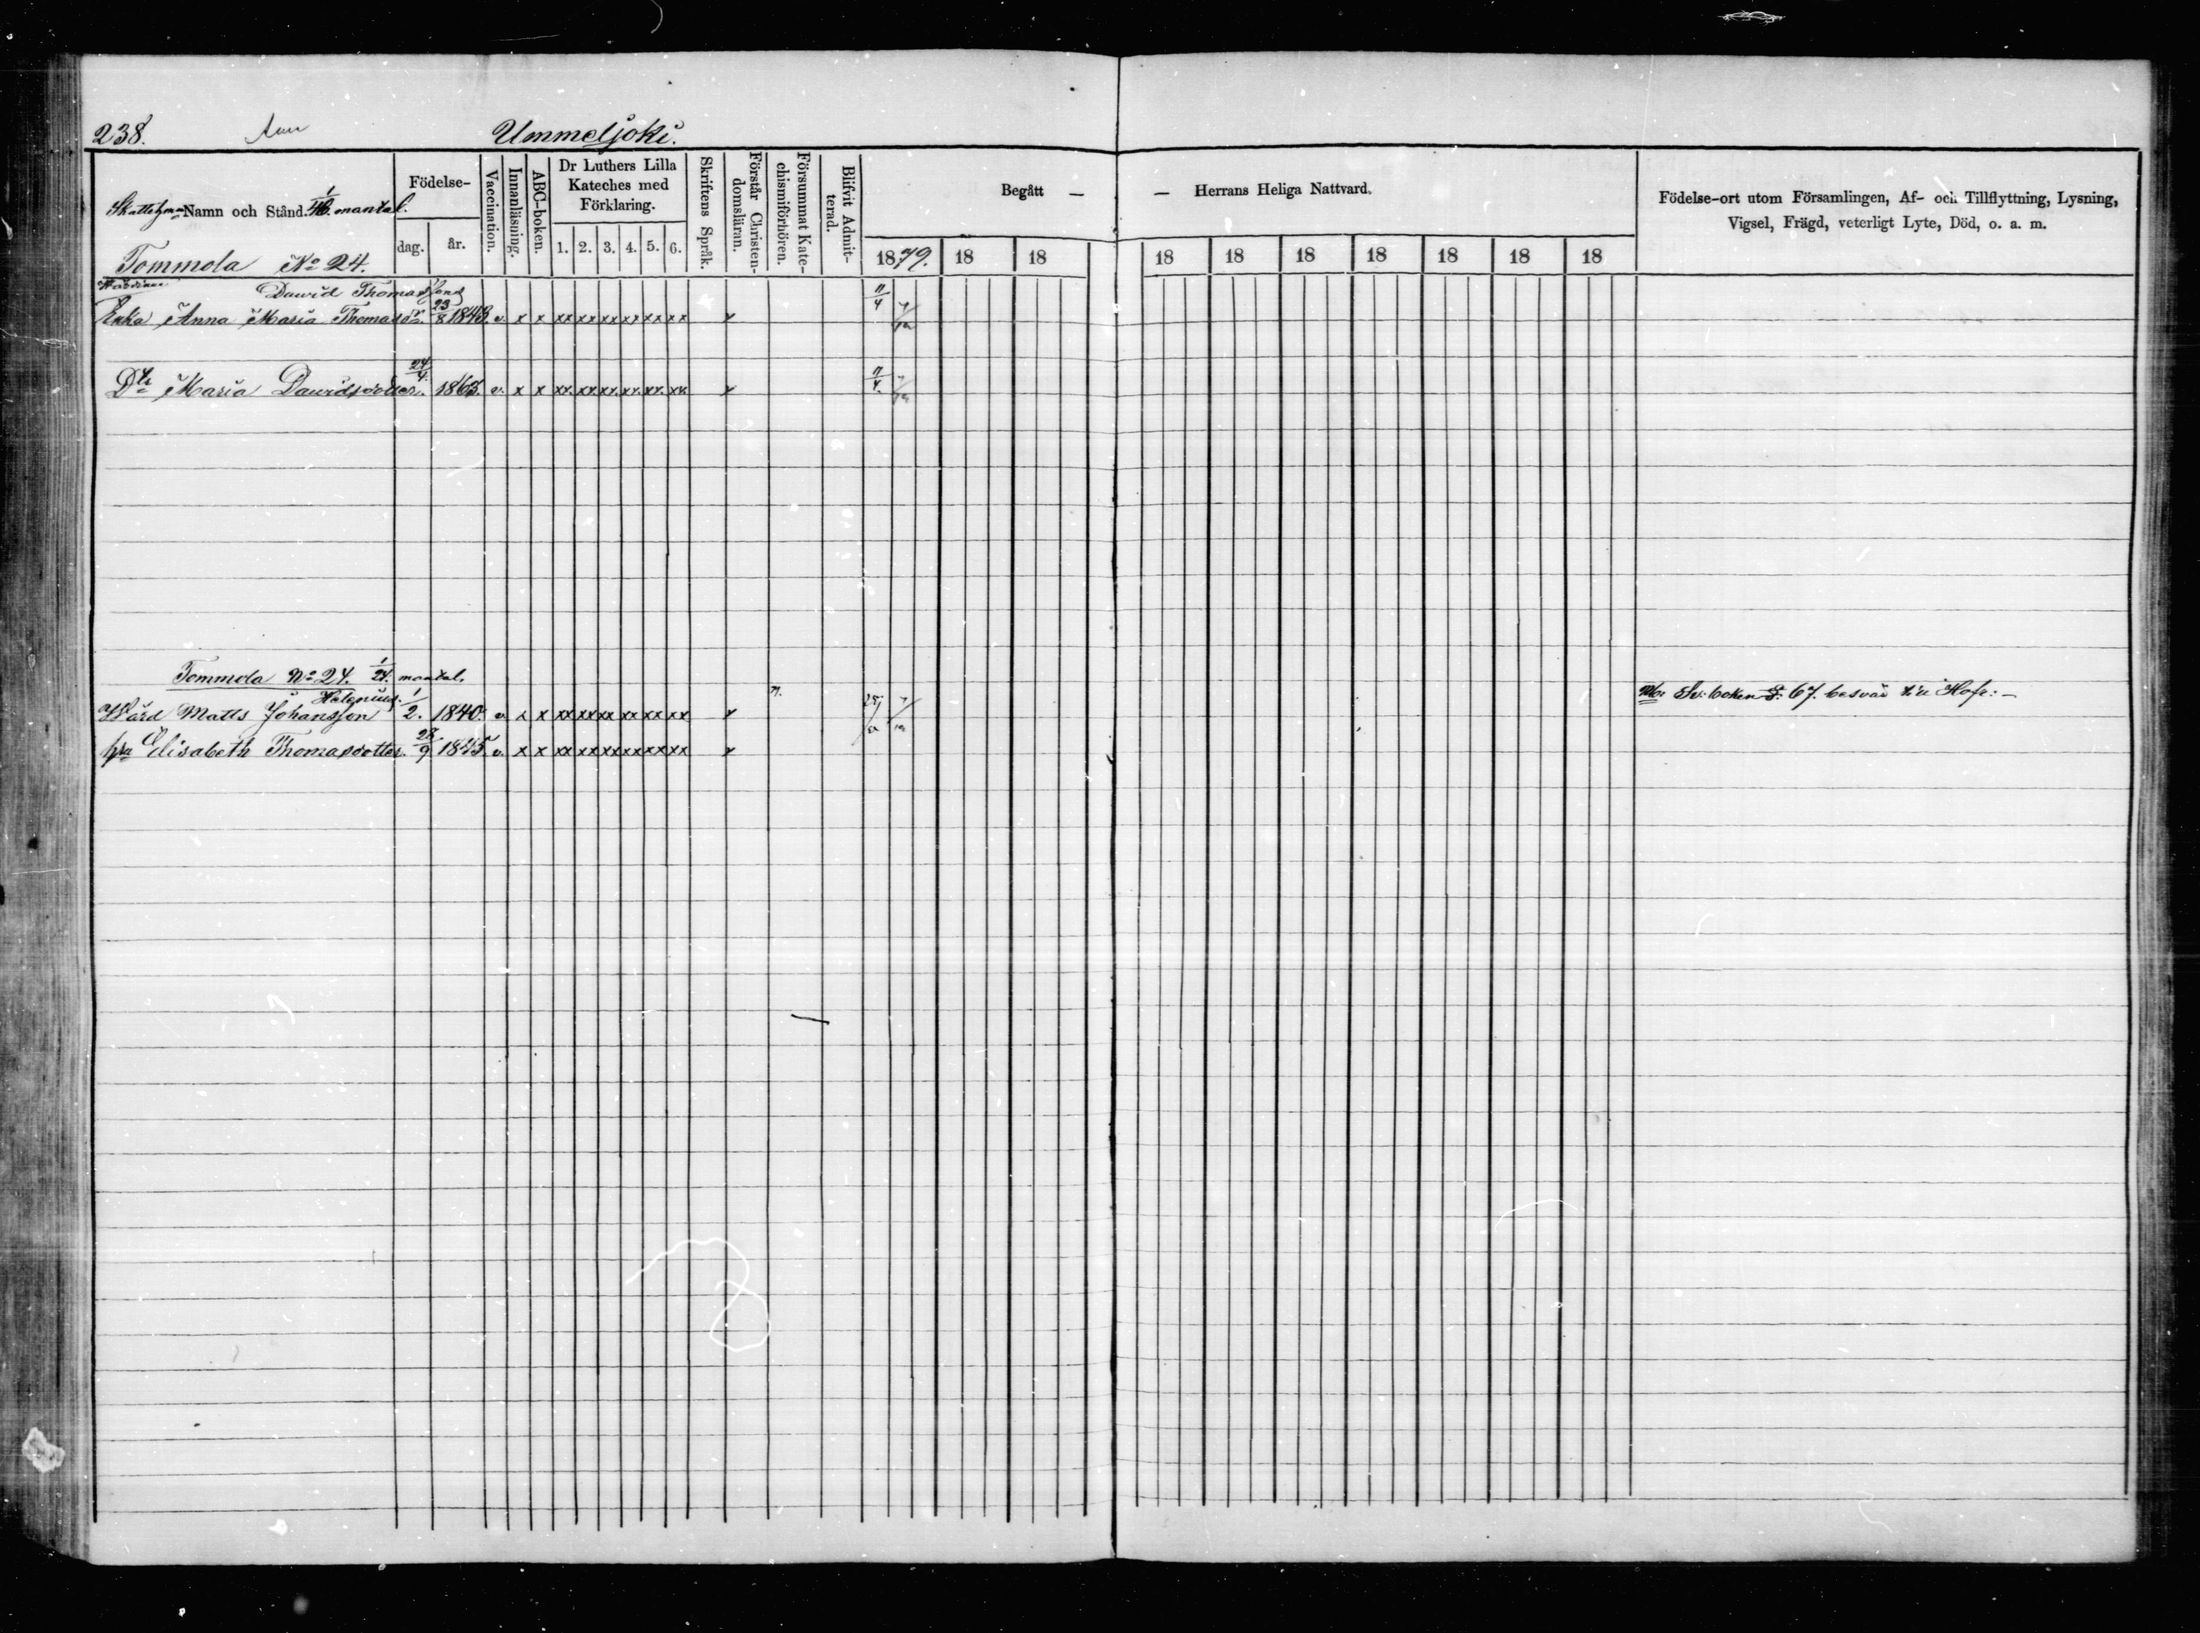 238. Ummeljoki.
Födelse-
Vaccination.
Innanläsning.
ABC-boken.
Dr Luthers Lilla
Kateches med
Förklaring.
Skriftens Språk.
Förstår Christen-
domsläran.
Försummat Kate-
chismiförhören.
Blifvit Admit-
terad.
Begått — — Herrans Heliga Nattvard.
Födelse-ort utom Församlingen, Af- och Tillflyttning, Lysning,
Vigsel, Frägd, veterligt Lyte, Död, o. a. m.
Namn och Stånd. mantal.
dag. år. 1. 2. 3. 4. 5. 6.
Tommola No 24.
1879. 18 18 18 18 18 18 18 18 18
Dawid Thomasson
Enka Anna Maria Thomasdr 23/8 1843. v. x x xx xx xx xx xx xx x 11/4
Dtr Maria Dawidsdotter. 24/4. 1863. v. x x xx. xx. xx. xx. xx. xx. x 11/4.
Tommola No 24. 1/24. mantal.
Helenius.
Wärd Matts Johansson 1/2. 1840. v. x x xx xx xx xx xx xx x
Nb: 67. besvär
hu Elisabeth Thomasdotter. 28/9 1845. v. x x xx xx xx xx xx xx x